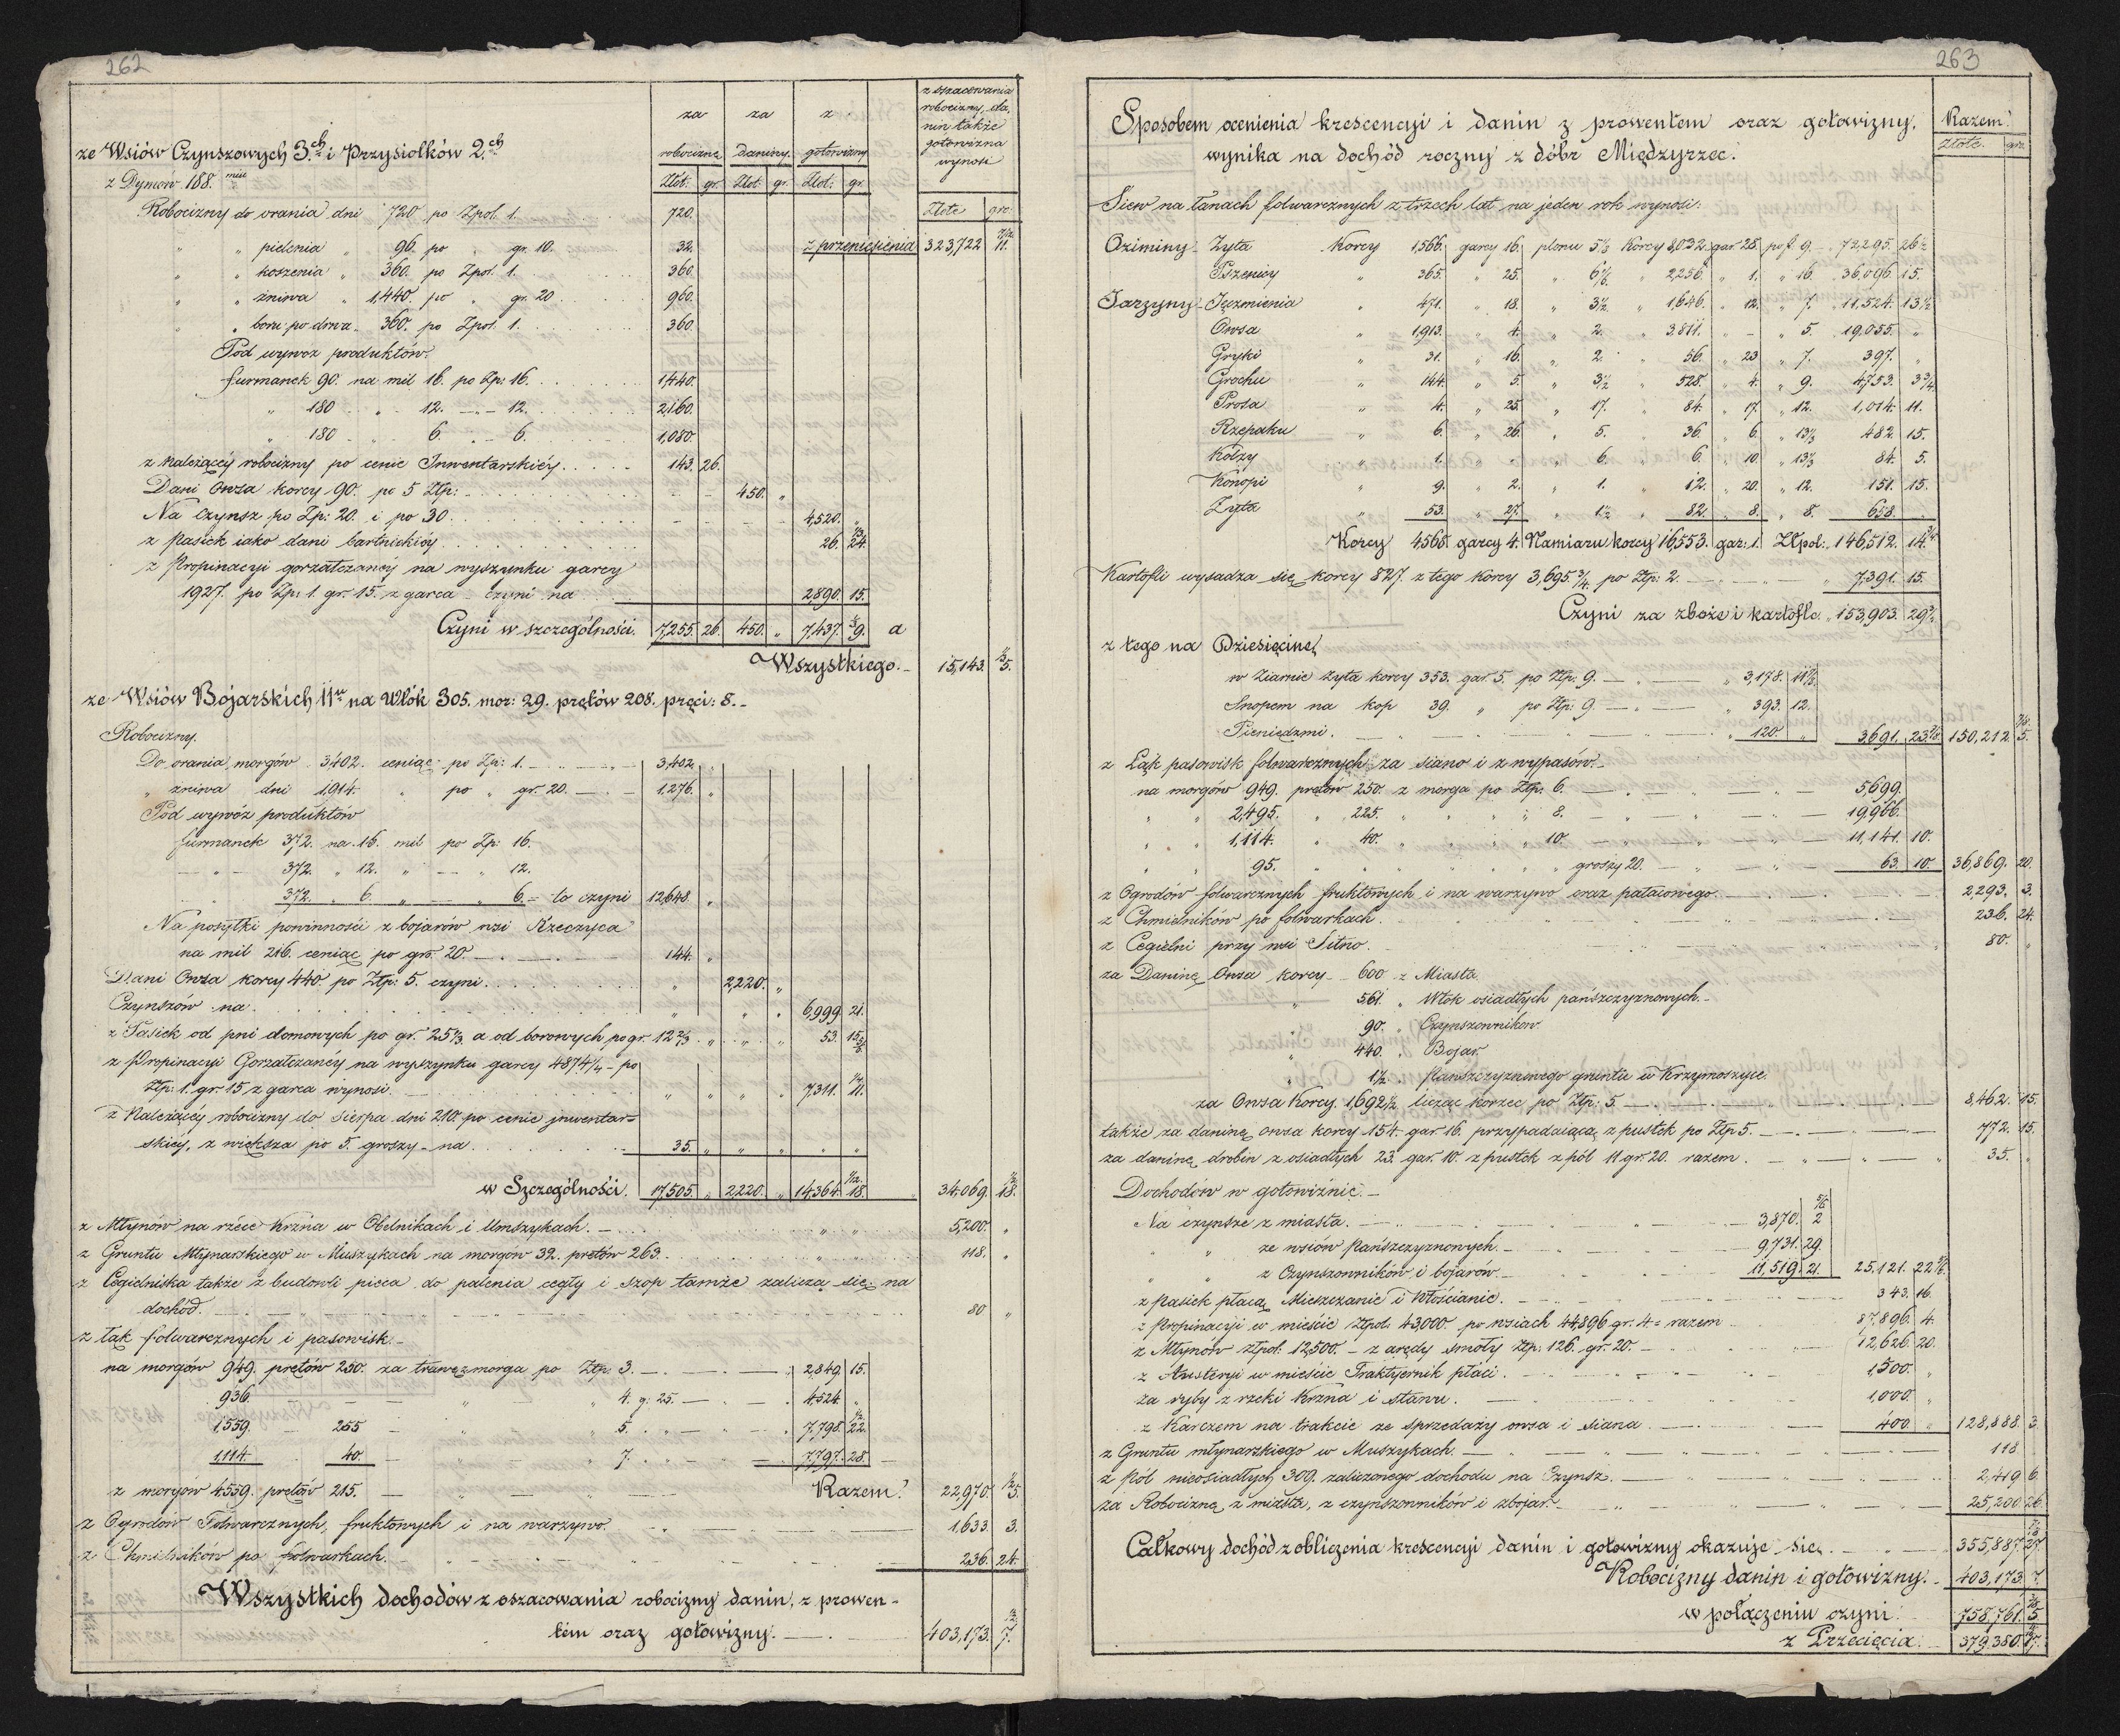 262
z oszacowania
robocizny, da-
nin także
gotowizna
wynosi
za za z
robociznę daniny gotowizny
Złot: gr. Złot gr. Złot: gr.
Złote gro:
ze Wsiów Czynszowych 3.ch i Przysiolków 2.ch
z Dymów 188.
Robocizny do orania dni 720 po Zpol. 1. 720.
" " pielenia " 96. po " gr. 10. 32. z przeniesienia 323,722 11.
" " koszenia " 360. po Zpol. 1. 360.
" " żniwa " 1,440. po " gr. 20 960.
" " boru po drwa " 360. po Zpol. 1. 360.
Pod wywoz produktów.
furmanek 90. na mil 16. po Zp: 16. 1,440.
" 180 " 12. — " — 12. 2,160.
" 180 " 6. " — 6. 1,080.
z Należącéy robocizny po cenie Inwentarskiéy. 143. 26.
Dani Owsa korcy 90. po 5 Złp: 450. "
Na Czynsz po Zp: 20. i po 30. 4,520. "
z pasiek iako dani bartnickiéy 26. 24.
z Propinacyi gorzałczanéy na wyszynku garcy
1927. po Zp: 1. gr. 15. z garca - czyni na 2,890. 15.
Czyni w szczególności. 7,255. 26. 450. " 7,437. 9. a
Wszystkiego. 15,143. 5.
ze Wsiów Bojarskich 11u na Włók 305. mor: 29. prętów 208. pręci: 8. -
Robocizny.
Do orania morgów 3402. ceniąc po Zp: 1. 3,402. "
" żniwa dni 1,914. " po " gr. 20. 1,276. "
Pod wywóz produktów
furmanek 372. na 16. mil po Zp: 16.
— " — 372. " 12. " — " 12.
372. " 6. " — " 6. - to czyni 12,648. "
Na posyłki powinności z bojarów wsi Rzeczyca
na mil 216. ceniąc po gro. 20. 144. "
Dani Owsa korcy 440. po Złp: 5. czyni. " 2,220. "
Czynszów na. " " " 6,999. 21.
z Pasiek od pni domowych po gr. 25⅓ a od borowych po gr. 12⅔ " " " 53. 15
z Propinacyi Gorzałczanéy na wyszynku garcy 4874¼ - po
Złp: 1. gr. 15 z garca wynosi. " " " " 7,311. 11.
z Należącéy robocizny do sierpa dni 210 po cenie inwentar-
skiéy, z większa po 5. groszy - na. 35. " " " " "
w Szczególności. 17,505. " 2,220. " 14,364. 18. 34,069. 18.
z Młynów na rzéce Krzna w Obelnikach i Umszykach. 5,200. "
z Gruntu Młynarskiego w Muszykach na morgów 32. prętów 263. 118. "
z Cegielniska także z budowli pieca do palenia cegły i szop tamże zalicza się na
dochód. 80 "
z łąk folwarcznych i pasowisk. -
na morgów 949. prętów 250. za trawę z morga po Złp: 3. 2,849. 15.
936. — " " 4. g: 25. 4,524. "
1,559. — 255 — " " 5. 7,798. 22.
1,114. 40. — " " 7. 7,797. 28.
z morgów 4559. prętów 215. Razem. 22,970. 5.
z Ogrodów Folwarcznych, fruktowych i na warzywo. 1,633. 3.
z Chmielników po folwarkach. 236. 24.
Wszystkich dochodów z oszacowania robocizny danin, z prowen-
tem oraz gotowizny. 403,173. 7.
263
Sposobem ocenienia krescencyi i danin z prowentem oraz gotowizny,
wynika na dochód roczny z dóbr Międzyrzec.
Razem
Złote. gro.
Siew na łanach folwarcznych z trzech lat na jeden rok wynosi:
Oziminy - Żyta Korcy 1,566. garcy 16. plonu 5⅛ Korcy 8,032. gar. 25. po f. 9. 72,295. 26½
Pszenicy " 365. " 25. " 6⅙. " 2,256. " 1. " 16. 36,096. 15.
Jarzyny - Jęczmienia " 471. " 18. " 3½. " 1,646. " 12. " 7. 11,524. 13½
Owsa " 1,913. " 4. " 2. " 3,811. " - " 5. 19,055. "
Gryki " 31. " 16. " 2. " 56. " 23 " 7. 397. "
Grochu " 144. " 5. " 3½ " 528. " 4. " 9. 4,753. 3¾
Prosa " 4. " 25. " 17. " 84. " 17. " 12. 1,014. 11.
Rzepaku " 6. " 26. " 5. " 36. " 6. " 13⅓ 482. 15.
Kolzy " 1. " " " 6. " 6. " 10. " 13⅓ 84. 5.
Konopi " 9. " 2. " 1. " 12. " 20. " 12. 151. 15.
Żyta " 53. " 27. " 1½ " 82. " 8. " 8. 658. "
Korcy 4565. garcy 4. Namiaru korcy 16,553. gar: 1. Złpol: 146,512. 14¾
Kartofli wysadza się korcy 827. z tego Korcy 3,695¾. po Złp: 2. 7,391. 15.
Czyni za zboże i kartofle. 153,903. 29¾
z tego na Dziesięcinę
w Ziarnie żyta korcy 353. gar. 5. po Złp. 9. 3,178. 11⅝
Snopem na kop 39. " po Złp: 9. 393. 12.
Pieniędzmi. 120 " 3,691. 23⅝ 150,212. 5.
z Łąk pasowisk folwarcznych za siano i z wypasów. -
na morgów 949. prętów 250. z morga po Złp: 6. 5,699.
" " 2,495. " 225. " " " 8. 19,966.
" " 1,114. " 40. " " " 10. 11,141. 10.
" " 95. " " " " " groszy 20. 63. 10. 36,869. 20.
z Ogrodów folwarcznych fruktowych i na warzywo oraz pałacowego. 2,293. 3.
z Chmielników po folwarkach. 236. 24.
z Cegielni przy wsi Sitno. 80. "
za Daninę Owsa korcy - 600 z Miasta
" 561. " Włok osiadłych pańszczyznowych. -
" 90. " Czynszowników.
" 440. " Bojar.
" 1½. " pańszczyznowego gruntu w Krzymoszyce.
za Owsa Korcy. 1,692½ licząc korzec po Złp: 5 8,462. 15.
także za daninę owsa korcy 154. gar. 16. przypadaiącą z pustek po Złp 5. 772. 15.
za daninę drobin z osiadłych 23. gar. 10. z pustek z pól 11 gr. 20. razem. 35. "
Dochodów w gotowiźnie. -
Na czynsze z miasta. 3,870. 2 5/6
" " ze wsiów Pańszczyznowych. 9,731. 29.
" " z Czynszowników i bojarów. 11,519. 21. 25,121. 22⅚.
z pasiek płacą Mieszczanie i Włościanie. 343. 16.
z Propinacyi w mieście Złpol: 43,000. po wsiach 44,896 gr. 4 = razem 87,896. 4.
z Młynów Złpol. 12,500. - z arędy smoły Złp: 126. gr. 20. 12,626. 20.
z Austeryi w mieście Traktyernik płaci. 1,500. "
za ryby z rzeki Krzna i stawu. 1,000. "
z Karczem na trakcie ze sprzedaży owsa i siana 400. " 128,888. 3.
z Gruntu młynarskiego w Muszykach. 118. "
z pól nieosiadłych 309. zaliczonego dochodu na Czynsz. 2,419. 6.
za Robociznę z miasta, z czynszowników i z bojar. 25,200. 26.
Całkowy dochód z obliczenia krescencyi danin i gotowizny okazuje się. 355,887. 27.
Robocizny danin i gotowizny. 403,173. 7.
w połączeniu czyni. 758,761. 5
z Przecięcia. 379,380. 17.